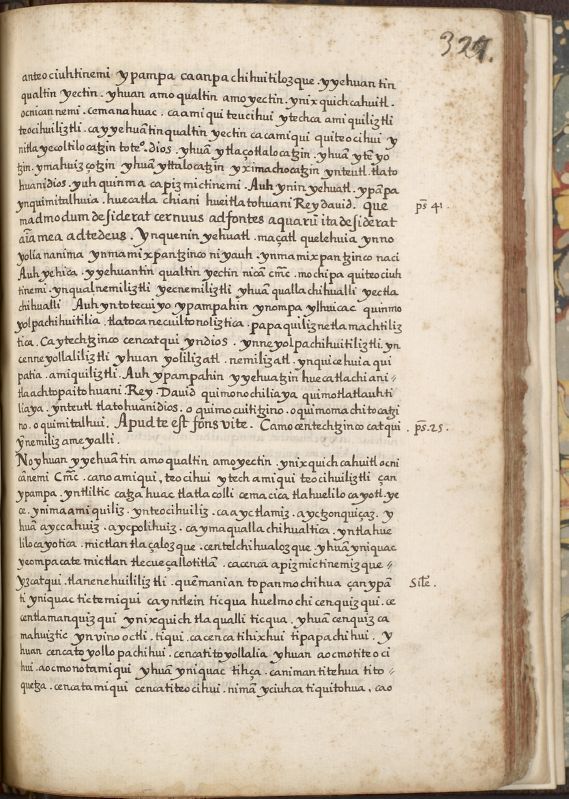 327.
anteociuhtinemi ypampa caanpachihuitilozque. yyehuantin
qualtin yectin. yhuan amo qualtin amo yectin. ynixquichcahuitl.
ocnican nemi. cemanahuac. ca amiqui teucihui ytechca amiquiliztli
teocihuiliztli. ca yyehuãtin qualtin yectin ca camiqui quiteocihui y
nitlayecoltilocatzin toteº. dios. yhuã ytlaçotlalocatzin. yhuã ytẽyo
tzin. ymahuizçotzin. yhuã yttalocatzin yximachocatzin ynteutl. tlato
huani dios. yuh quinma capizmictinemi. Auh ynin yehuatl. ypãpa
ynquimitalhuia. huecatlachiani huei tlatohuani Rey dauid. que
madmodum desiderat ceruus adfontes aquarũ ita desiderat
aĩa mea ad te deus. Ynquenin yehuatl. maçatl quelehuia ynno
yolia nanima ynmamixpantzinco niyauh. ynmamixpantzinco naci
Auh yehica. yyehuantin qualtin yectin nicã cm̃c. mochipa quiteociuh
tinemi. ynqualnemiliztli yecnemiliztli yhuã qualla chihualli yectla
chihualli Auh yn totecuiyo ypampahin ynompa ylhuicac quinmo
yolpachihuitilia. tlatocanecuiltonoliztica. papaquiliznetlamachtiliz
tica. Caytechtzinco cencatqui yndios. ynneyolpachihuitiliztli. yn
cenneyollaliliztli yhuan yolilizatl. nemilizatl. ynquicehuia qui
patia. amiquiliztli. Auh ypampahin yyehuatzin huecatlachiani=
tlaachtopaitohuani. Rey. Dauid quimonochiliaya quimotlatlauhti
liaya. ynteutl tlatohuani dios. oquimocuitigzino. oquimomachitocatzi
no. oquimitalhui. Apud te est fons vite. Camocentechtzinco catqui
yñnemiliz ameyalli.
Noyhuan yyehuãtin amo qualtin amo yectin. ynixquichcahuitl ocni
cãnemi Cm̃c. cano amiqui, teocihui ytech amiqui teocihuiliztli çan
ypampa. yntliltic catzahuac tlatlacolli cemacica tlahuelilocayotl. ye
ce. ynimaamiquiliz. ynteocihuiliz. caayctlamiz. ayctzonquiçaz. y
huã ayccahuiz. aycpolihuiz. caymaquallachihualtica. yntlahue
lilocayotica. mictlantlaçalozque. centelchihualozque. yhuã yniquac
yeompacate mictlan tlecueçallotitlã. cacenca apizmictinemizque=
yzcatqui. tlanenehuililiztli. quẽmanian topanmochihua çanypã
ti yniquac tictemiqui cayntlein ticqua huelmochicenquizqui. ce
centlamanquizqui ynixquich tlaqualli ticqua. yhuã cenquizca
mahuiztic yn vino octli. tiqui. ca cenca tihixhui tipapachihui. y
huan cenca toyollo pachihui. cenca titoyollalia yhuan aocmo titeoci
hui. aocmono tamiqui yhuã yniquac tihça. canimantitehua tito=
quetza. cenca tamiqui cenca titeocihui. nimã yciuhca tiquitohua, cao
ps̃ 41.
ps̃. 25.
Sitẽ.